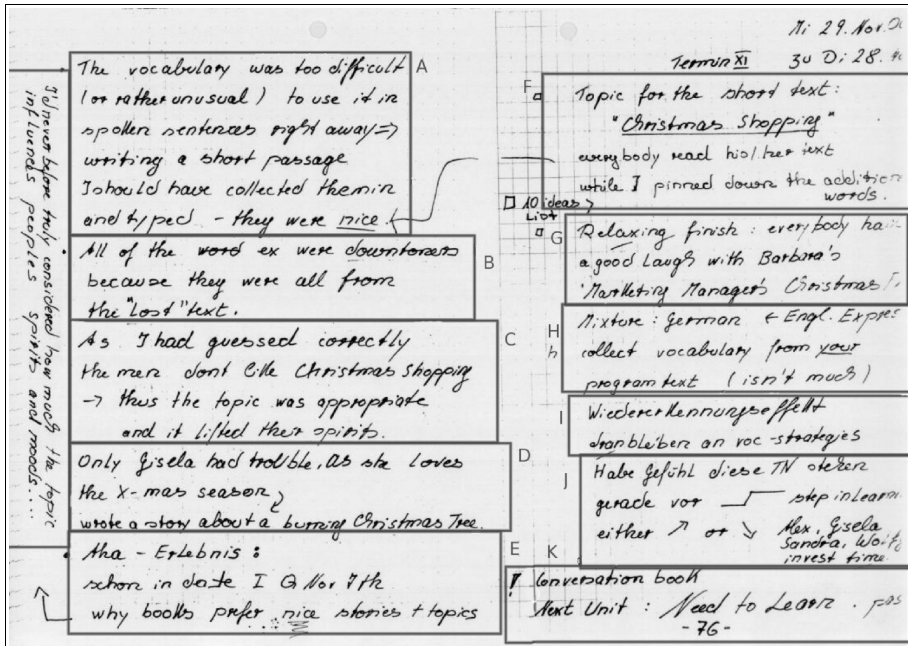 The vocabulary was too difficult
(or rather unusual) to use it in
spoken sentences right away =>
writing a short passage
I should have collected them in
and typed - they were nice
A
All of the word ex were downtoners
because they were all from
the "Lost" text.
B
As I had guessed correctly
the men dont like Christmas Shopping
→ thus the topic was appropriate
and it lifted their spirits.
C
Only Gisela had trouble, as she loves
the X-mas season
wrote a story about a burning Christmas Tree.
D
Aha - Erlebnis:
schon in date I Q Nov 7th
why books prefer nice stories + topics
E
I'd never before truly considered how much the topic
influences peoples spirits and moods....
Mi 29. Nov.
Termin XI zu Di 28.
F
Topic for the short text:
"Christmas Shopping"
everybody read his/her text
while I pinned down the addition
words.
10 ideas
List
G
Relaxing finish: everybody
a good laugh with Barbara's
"Marketing Manager's Christmas
H
h
Mixture: German + Engl. Expres
collect vocabulary from your
program text (isn't much)
I
Wiedererkennungseffekt
dranbleiben an voc-strategies
J
Habe Gefühl diese TN stehen
gerade vor step in learn
either ↗ or ↘ Alex, Gisela
Sandra,
invest time.
K
! Conversation book
Next Unit: Need to Learn.
-76-